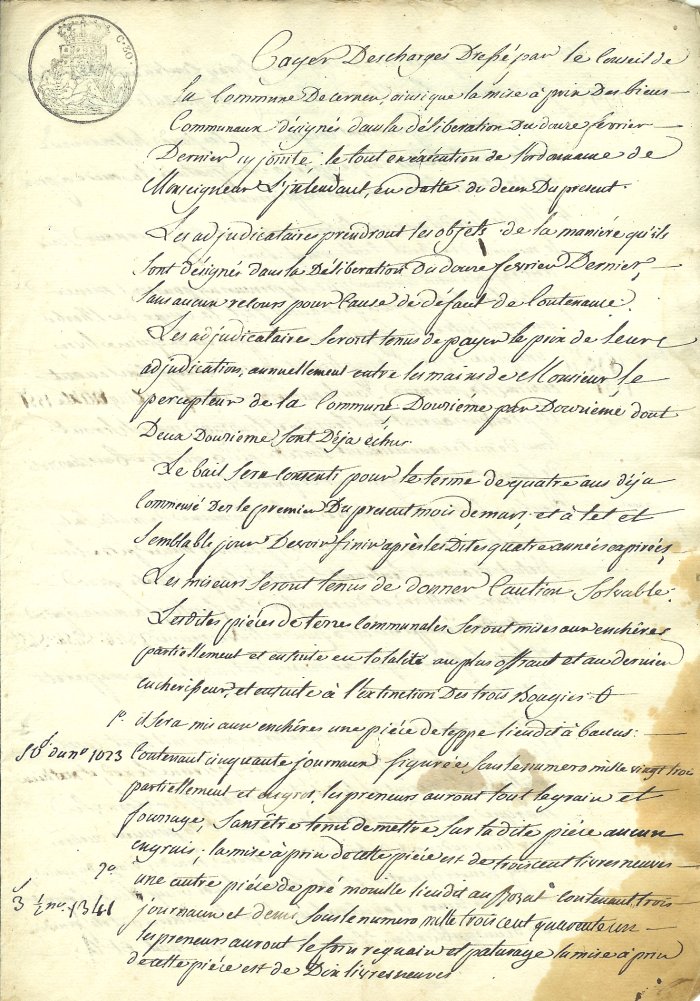 C. 30.
Cayer Descharges Dressé par le Conseil de
la Commune Decernex, ainsique la mise à prix Des biens
Communaux désignés dans la déliberation Du douze fevrier
Dernier cy jointe; le tout en exécution de l'ordonnance de
Monseigneur L'jntendant, en datte du deux Du present.
Les adjudicataires prendront les objets de la manière qu'ils
sont désignés dans la Déliberation Du douze fevrier Dernier,
sans aucun recours pour Cause de défaut de Contenance.
Les adjudicataires seront tenus de payer le prix de leurs
adjudication, annuellement entre les mains de Monsieur le
percepteur de la Commune, Douzième par Douzième dont
Deux Douzième sont Déja échux
Le bail sera Consenti pour le terme de quatre ans déja
Commensé Dez le premier Du present mois de mars et à tel et
semblable jour Devoir finir après les Dites quatre années expirées,
Les miseurs seront tenus de donner Caution Solvable.
Les Dites pièces de terre Communales seront mises aux enchères
partiellement et ensuite en totalité au plus offrant et au dernier
encherisseur, et ensuite à l'extinction Des trois Bougies
1º. il sera mis aux enchères une pièce de teppe lieudit à bacus:
50 j Du nº 1023 Contenant cinquante journaux figurée sous le numero mille vingt trois
partiellement et engrot, les preneurs auront tout le grain et
fourrage, sans être tenu de mettre sur la dite pièce aucun
engrais; la mise à prix de cette pièce est de trois cent livres neuves
2º
une autre pièce de pré mouille lieudit au contenant trois
3 j ½ nº. 1341 journaux et demi sous le numero mille trois cent quarante un
les preneurs auront le foin reguain et paturage la mise à prix
de cette pièce est de Dix livres neuves